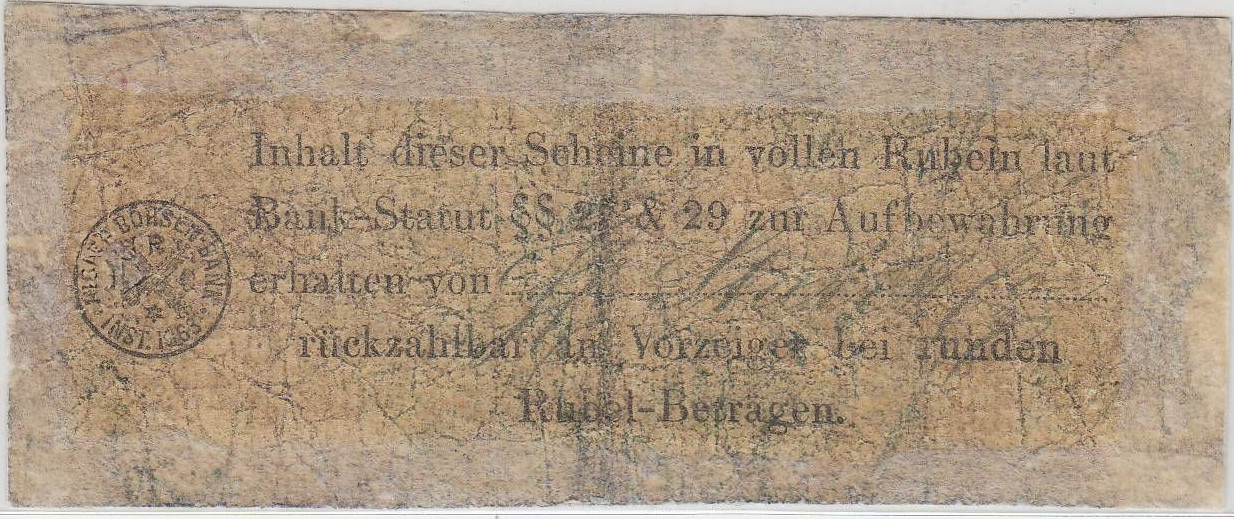 Inhalt dieser Scheine in vollen Rubeln laut
Bank-Statut §§ & 29 zur Aufbewahrung
erhalten von
rückzahlbar an Vorzeiger bei runden
Rubel-Beträgen.
BÖRSEN-BANK
INST. 1863